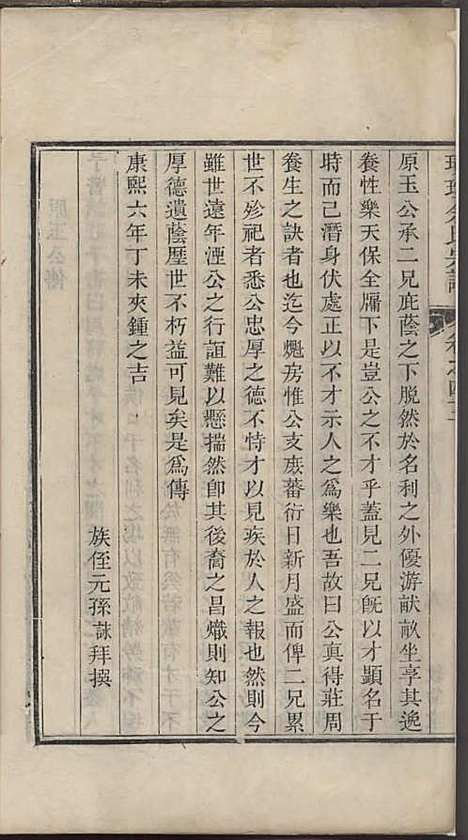 原玉公承二兄庇蔭之下脫然於名利之外優游獻畝坐享其逸
養性樂天保全牖下是豈公之不才乎蓋見二兄旣以才顯名于
時而己潛身伏處正以不才示人之為樂也吾故曰公真得莊周
養生之訣者也迄今房惟公支蕃衍日新月盛而俾二兄累
世不殄祀者悉公忠厚之德不恃才以見疾於人之報也然則今
雖世遠年湮公之行誼難以懸揣然卽其後裔之昌熾則知公之
厚德遺蔭歷世不朽益可見矣是為傳
康熙六年丁未夾鍾之吉
族侄元孫詠拜撰